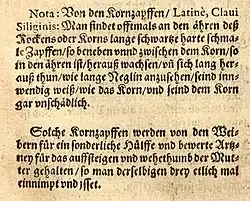 Nota: Von den Kornzapffen / Latinè, Claui
Siliginis: Man findet offtmals an den ähren deß
Rockens oder Korns lange schwartze harte schma-
le Zapffen / so beneben vnnd zwischen dem Korn / so
in den ähren ist / herauß wachsen / vñ sich lang her-
auß thun / wie lange Neglin anzusehen / seind inn-
wendig weiß / wie das Korn / vnd seind dem Korn
gar vnschädlich.
Solche Kornzapffen werden von den Wei-
bern für ein sonderliche Hülffe vnd bewerte Artz-
ney für das auffsteigen vnd wehethumb der Mut-
ter gehalten / so man derselbigen drey etlich mal
einnimpt vnd jsset.